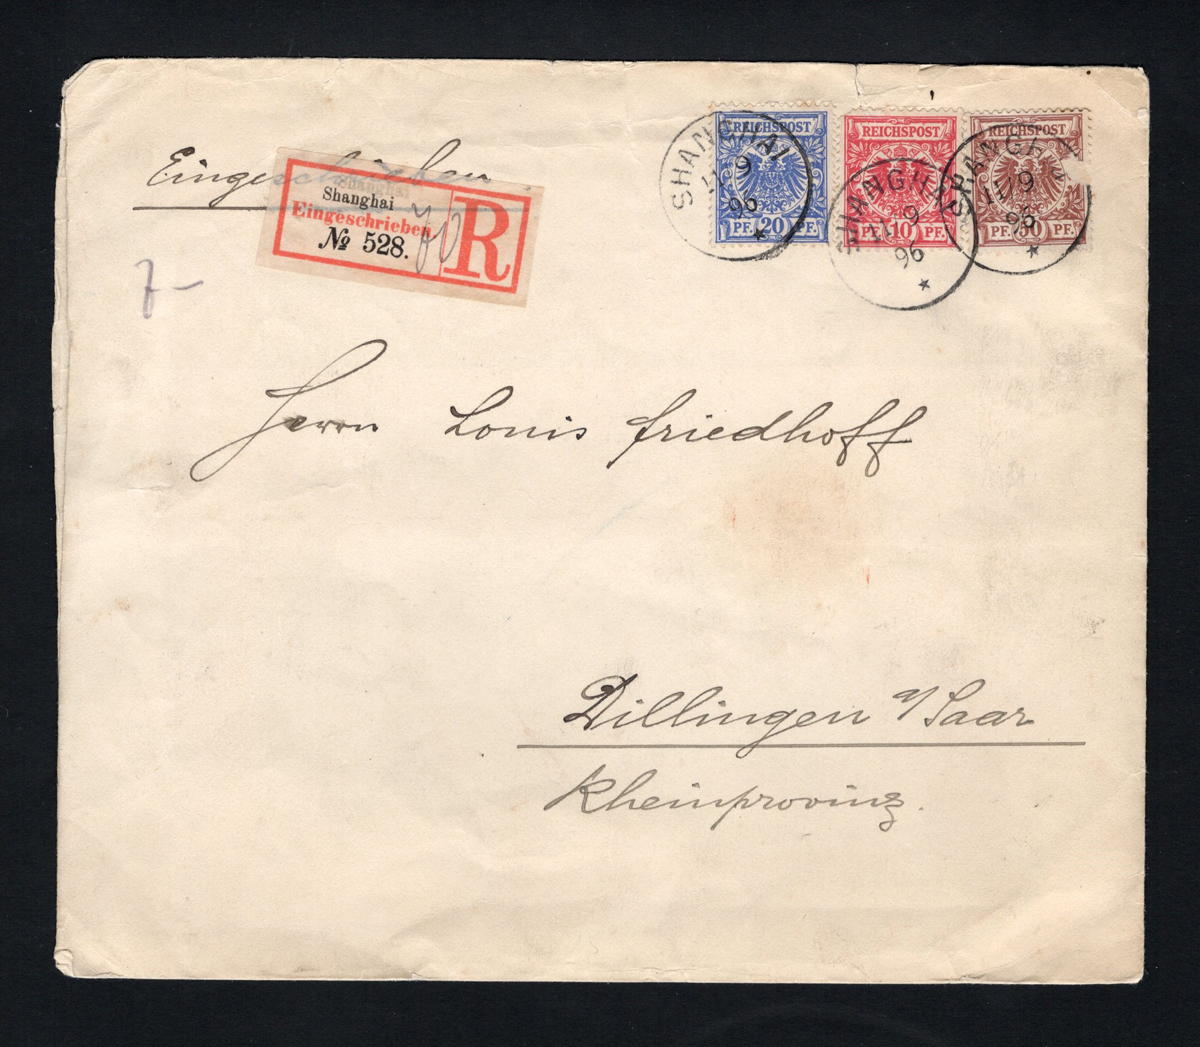 Eingeschrieben.
Shanghai
Shanghai
Eingeschrieben
№ 528.
R
70
7-
REICHSPOST
PF. 20 PF.
REICHSPOST
PF. 10 PF.
REICHSPOST
PF. 50 PF.
SHANGHAI
11/9
96
SHANGHAI
11/9
96
SHANGHAI
11/9
96
Herrn Louis Friedhoff
Dillingen a/Saar
Rheinprovinz.